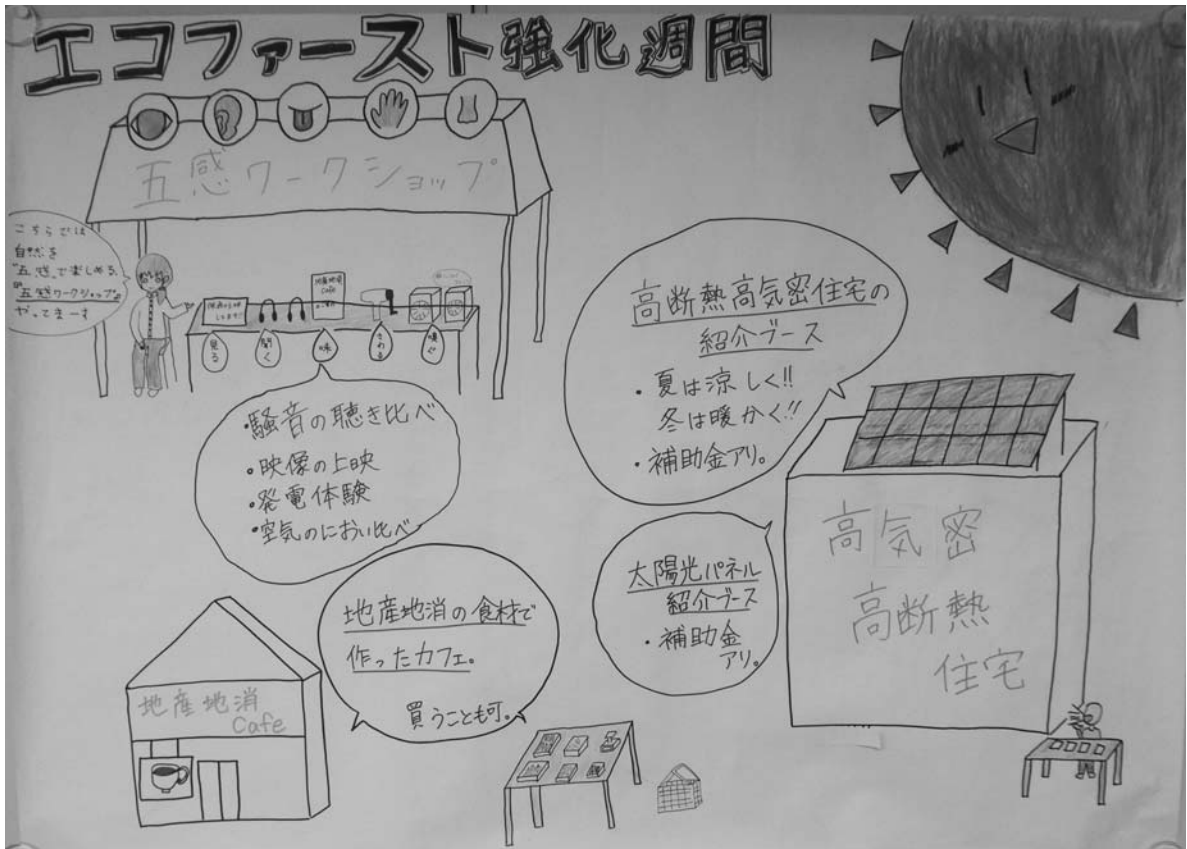 エコファースト強化週間
五感ワークショップ
こちらでは
自然を
"五感"で楽しめる、
『五感ワークショップ』
やってまーす
地産地消
Cafe
見る
聞く
味
さわる
嗅ぐ
・騒音の聴き比べ
・映像の上映
・発電体験
・空気のにおい比べ
高断熱高気密住宅の
紹介ブース
・夏は涼しく!!
冬は暖かく!!
・補助金アリ。
太陽光パネル
紹介ブース
・補助金
アリ。
高気密
高断熱
住宅
地産地消の食材で
作ったカフェ。
買うことも可。
地産地消
Cafe